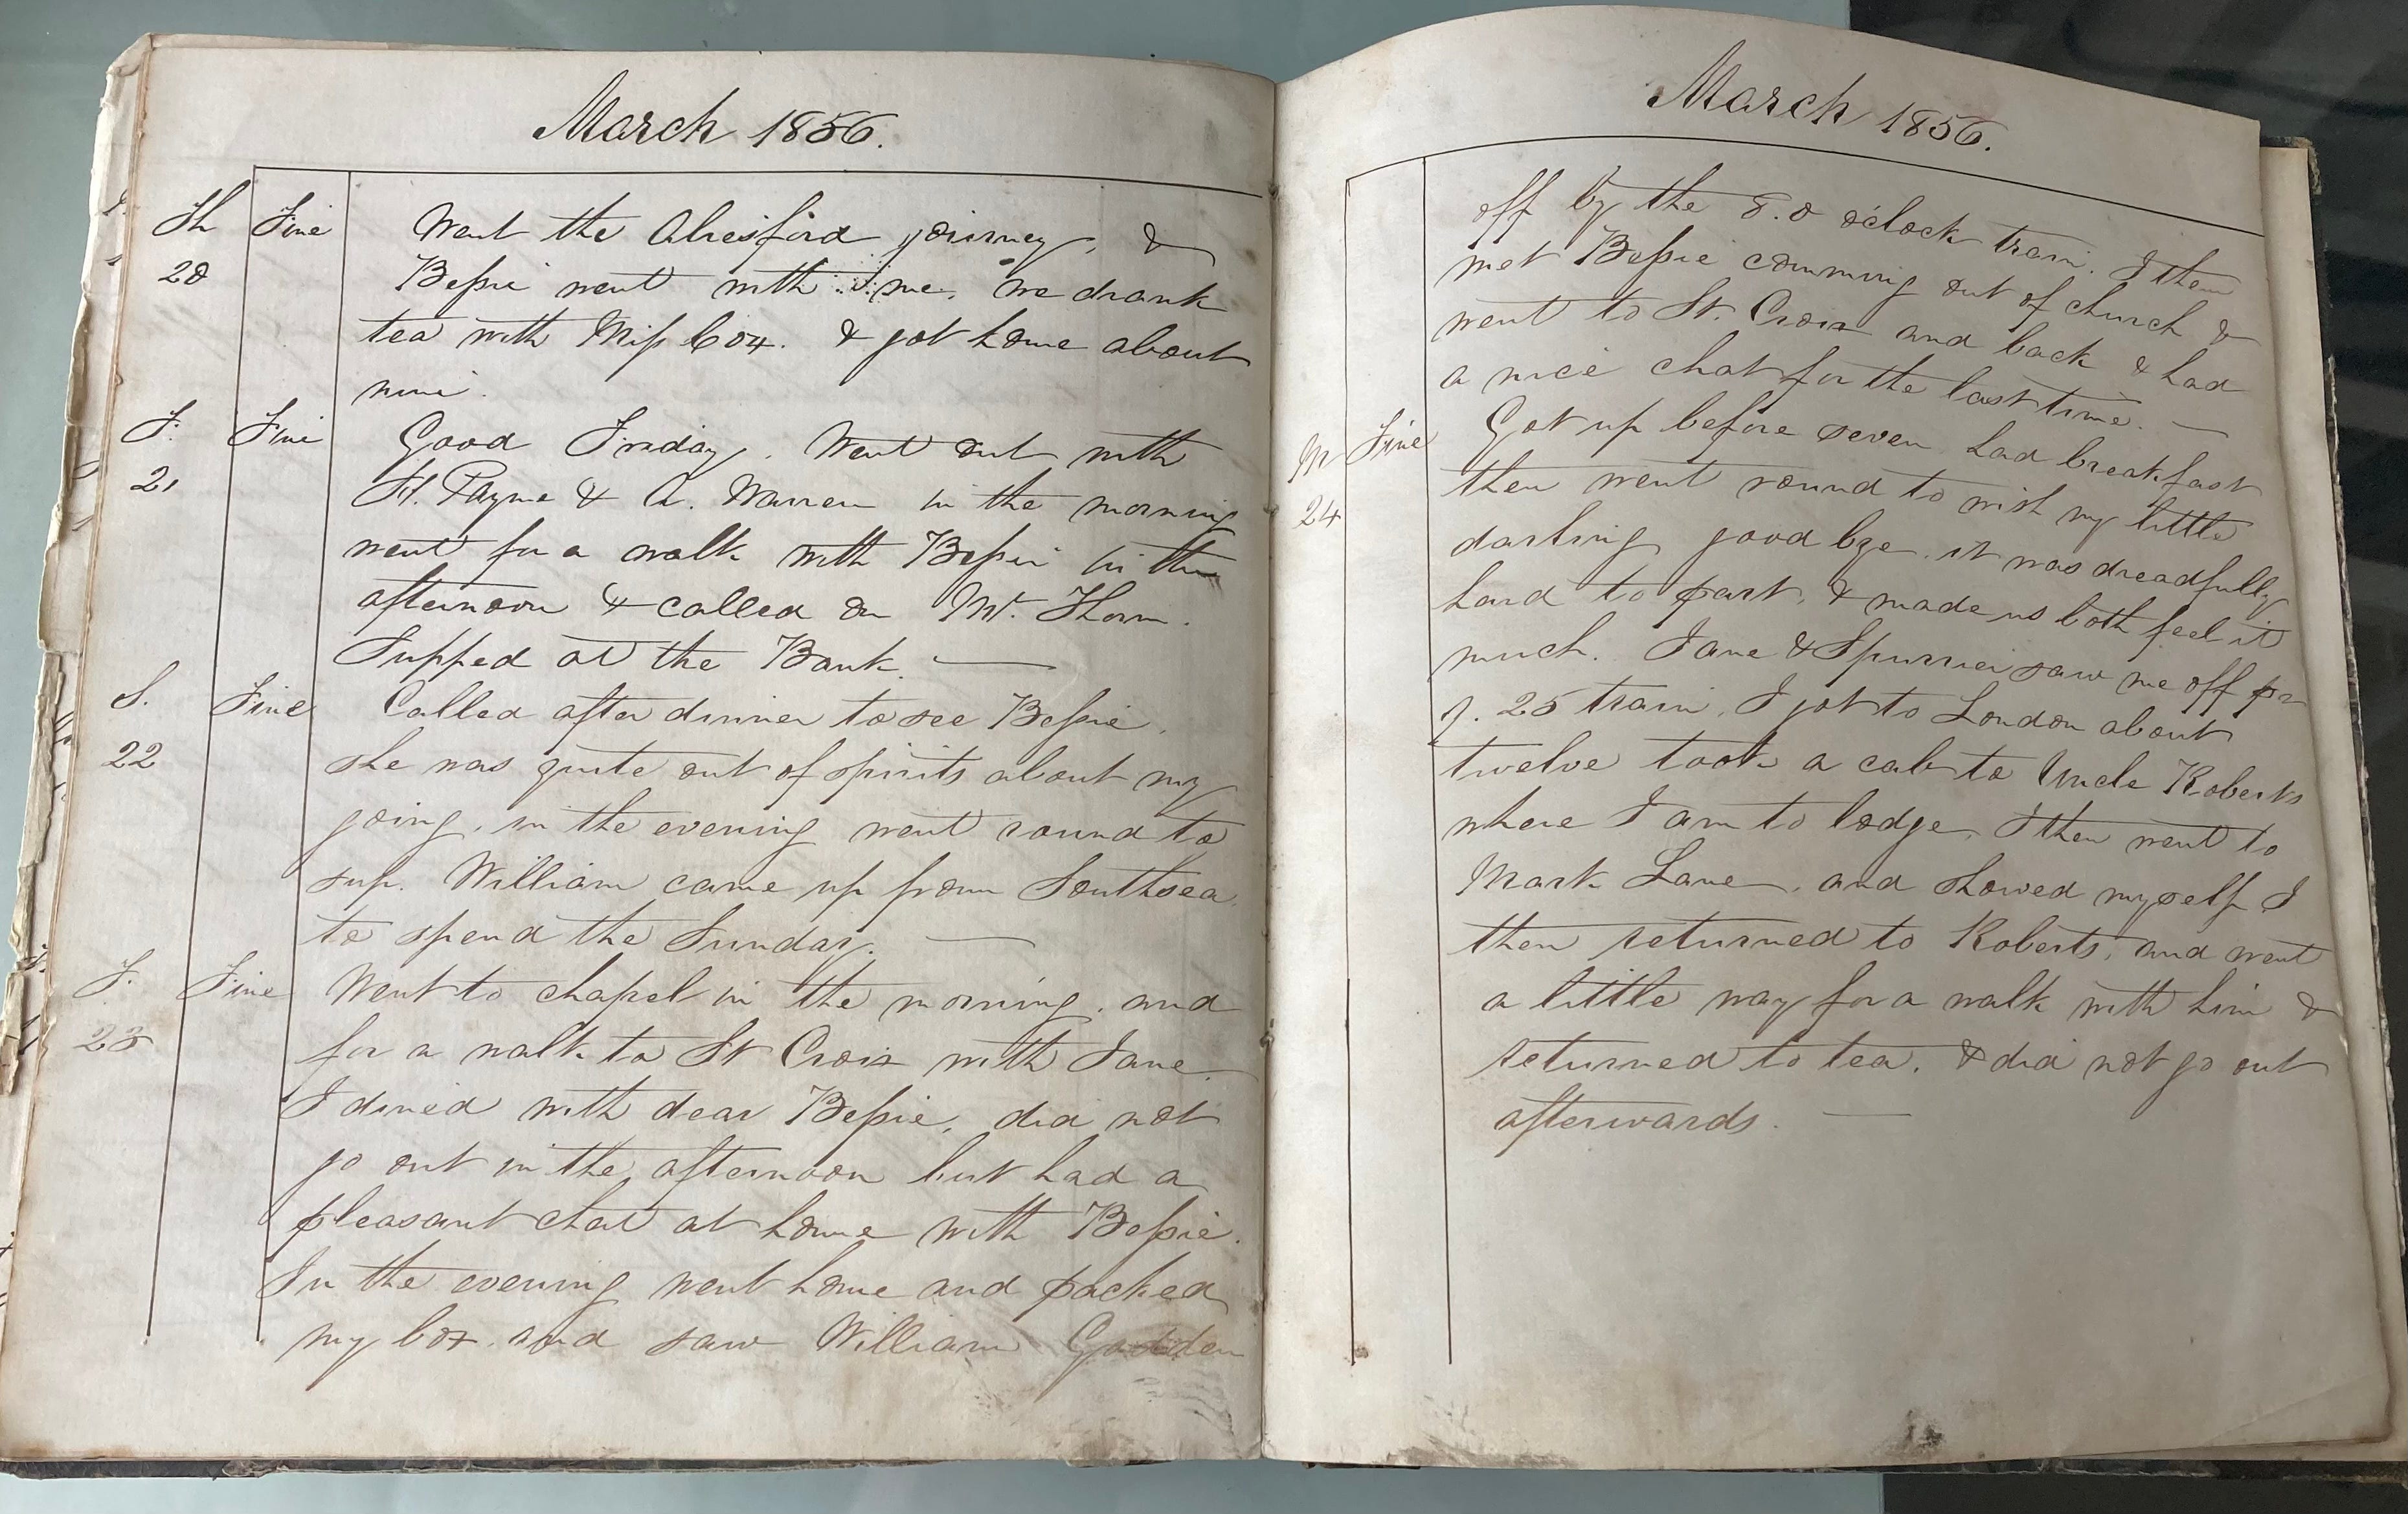 March 1856.
Th Fine Went the Alresford journey, &
20 Bessie went with me, we drank
tea with Miss Cox. & got home about
nine.
F. Fine Good Friday. Went out with
21 H. Payne & A. Warren in the morning
went for a walk with Bessie in the
afternoon & called on Mr. Thorn.
Supped at the Bank. —
S. Fine Called after dinner to see Bessie,
22 she was quite out of spirits about my
going, in the evening went round to
sup. William came up from Southsea
to spend the Sunday. —
S. Fine Went to chapel in the morning, and
23 for a walk to St Croix with Jane.
I dined with dear Bessie, did not
go out in the afternoon but had a
pleasant chat at home with Bessie.
In the evening went home and packed
my box. and saw William Godden
March 1856.
off by the 8.0 o'clock train. I then
met Bessie comming out of church &
went to St. Croix and back & had
a nice chat for the last time. —
M Fine Got up before seven had breakfast
24 then went round to wish my little
darling good bye. it was dreadfully
hard to part, & made us both feel it
much. Jane & Spurrier saw me off pr
9.25 train, I got to London about
twelve took a cab to Uncle Roberts
where I am to lodge, I then went to
Mark Lane, and showed myself I
then returned to Roberts, and went
a little way for a walk with him &
returned to tea, & did not go out
afterwards. —